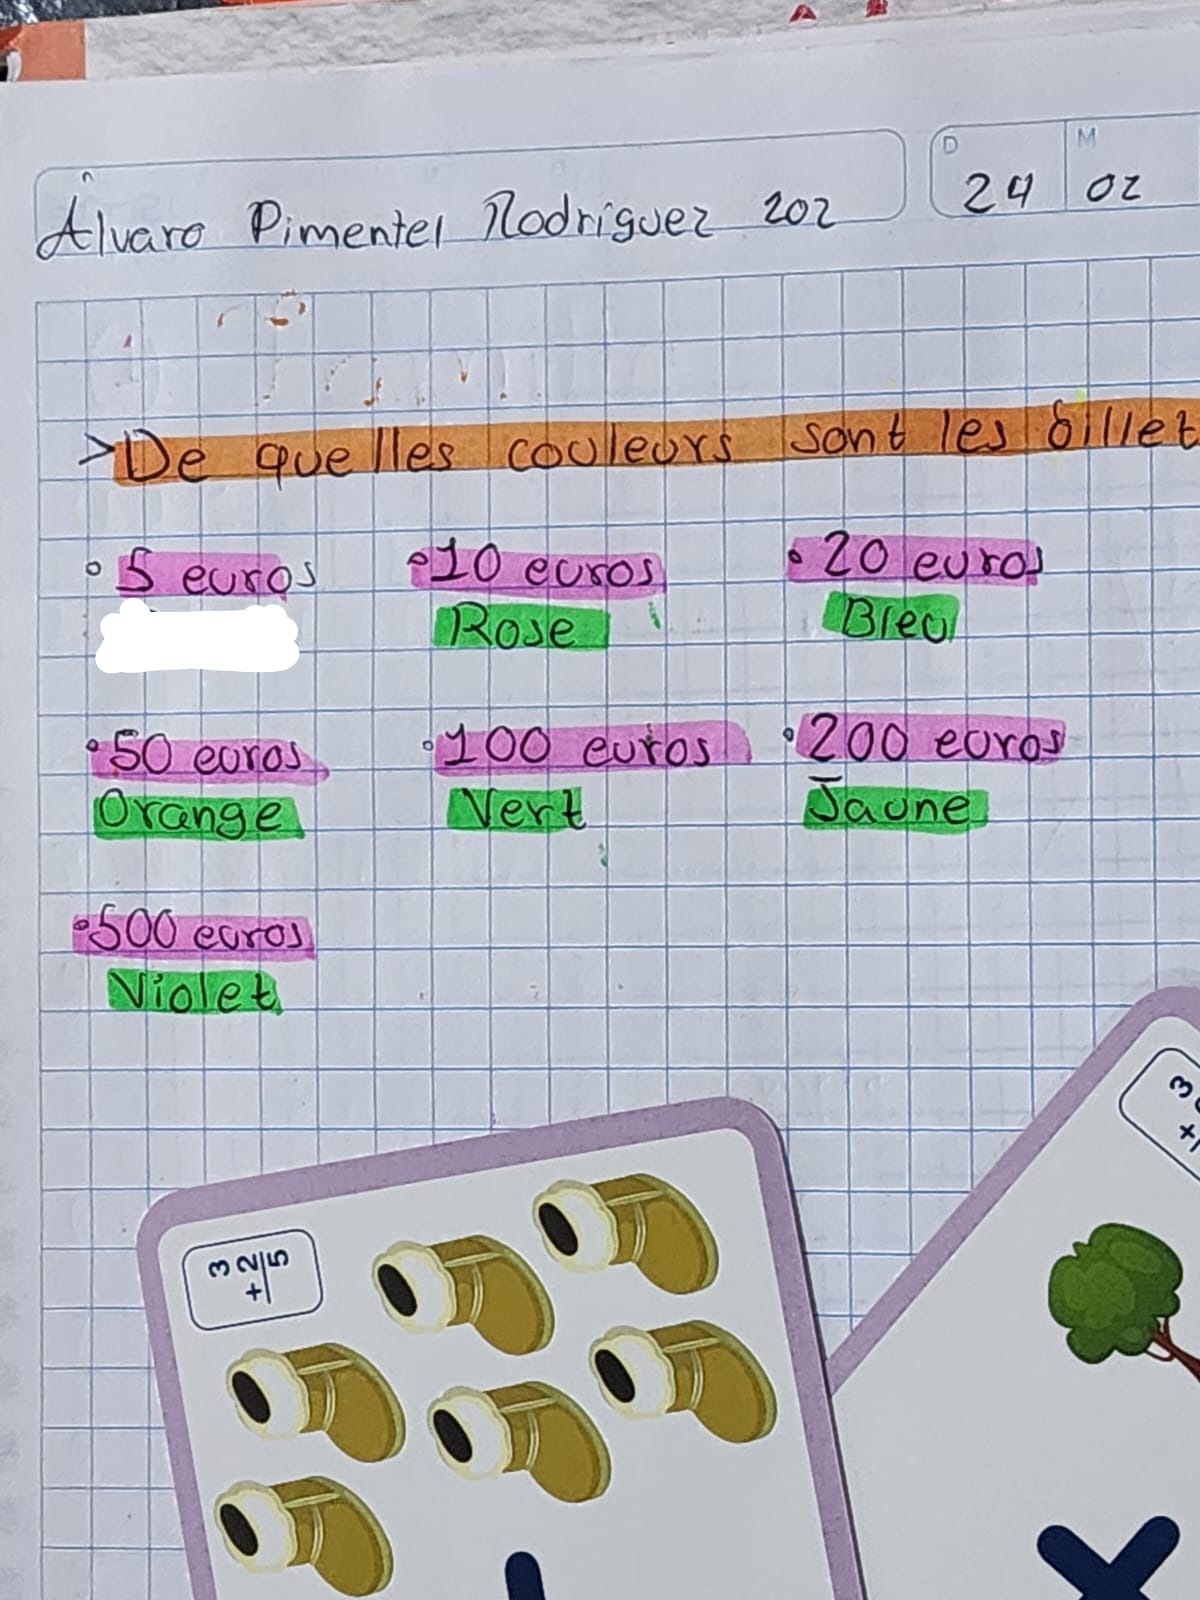 Álvaro Pimentel Rodríguez 202
D 24 M 02
>De quelles couleurs sont les billet
5 euros
10 euros
20 euros
Rose
Bleu
50 euros
100 euros
200 euros
Orange
Vert
Jaune
500 euros
Violet
3
+2
5
3
+